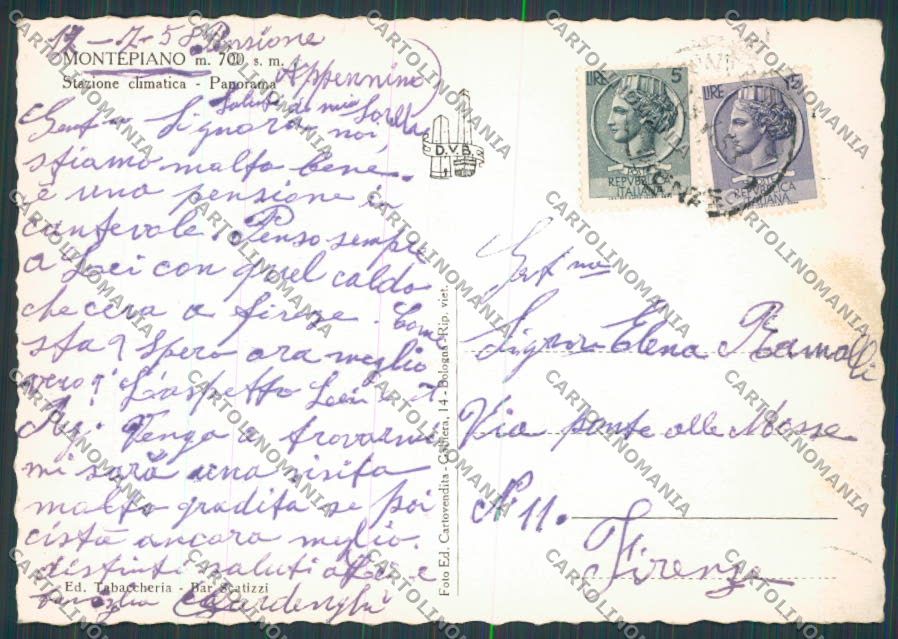 17-7-58 Pensione
MONTEPIANO m. 700 s. m.
Appennino
Stazione climatica - Panorama
Saluti da mia Sorella
Signora noi
stiamo molto bene.
è una pensione in
cantevole. Penso sempre
a Loei con quel caldo
che cera a firenze. Come
sta? Spero ora meglio
vero? L'aspetto Loei e il
Rag. Venga a trovarmi
mi sarà una visita
molto gradita se poi
cista ancora meglio.
distinti saluti a Lei e
famiglia
Ed. Tabaccheria - Bar Scatizzi
D.V.B.
Foto Ed. Cartovendita - Galliera, 14 - Bologna - Rip. viet.
LIRE 5
REPVBBLICA
ITALIANA
LIRE
REPVBBLICA
ITALIANA
Signora Elena
Via ponte alle Mosse
N. 11.
Firenze
CARTOLINOMANIA